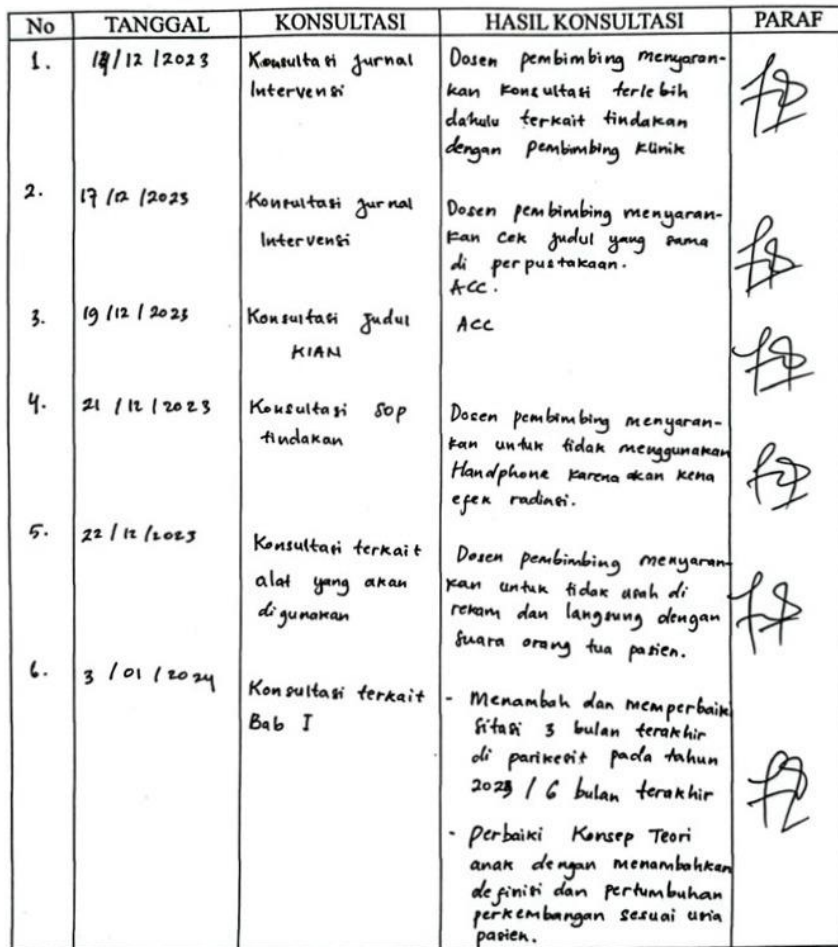 No TANGGAL KONSULTASI HASIL KONSULTASI PARAF
1. /12/2023 Konsultasi Jurnal Intervensi
Dosen pembimbing menyaran-
kan konsultasi terlebih
dahulu terkait tindakan
dengan pembimbing klinik
2. 17/12/2023 Konsultasi Jurnal
Intervensi
Dosen pembimbing menyaran-
kan cek judul yang sama
di perpustakaan.
ACC.
3. 19/12/2023 Konsultasi Judul
KIAN
ACC
4. 21/12/2023 Konsultasi SOP
tindakan
Dosen pembimbing menyaran-
kan untuk tidak menggunakan
Handphone karena akan kena
efek radiasi.
5. 22/12/2023
Konsultasi terkait
alat yang akan
digunakan
Dosen pembimbing menyaran-
kan untuk tidak usah di
rekam dan langsung dengan
suara orang tua pasien.
6. 3/01/2024
Konsultasi terkait
Bab I
- Menambah dan memperbaiki
sitasi 3 bulan terakhir
di parikesit pada tahun
2023 / 6 bulan terakhir
- Perbaiki Konsep Teori
anak dengan menambahkan
definisi dan pertumbuhan
perkembangan sesuai usia
pasien.